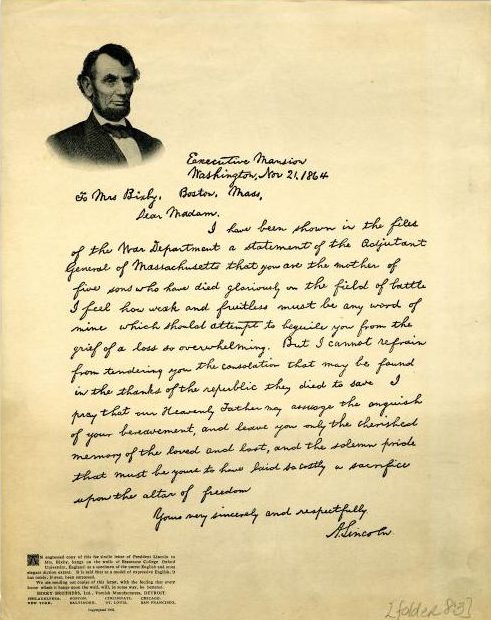 Executive Mansion
Washington, Nov 21, 1864
To Mrs Bixby, Boston, Mass,
Dear Madam.
I have been shown in the files
of the War Department a statement of the Adjutant
General of Massachusetts that you are the mother of
five sons who have died gloriously on the field of battle
I feel how weak and fruitless must be any word of
mine which should attempt to beguile you from the
grief of a loss so overwhelming. But I cannot refrain
from tendering you the consolation that may be found
in the thanks of the republic they died to save I
pray that our Heavenly Father may assuage the anguish
of your bereavement, and leave you only the cherished
memory of the loved and lost, and the solemn pride
that must be yours to have laid so costly a sacrifice
upon the altar of freedom
Yours very sincerely and respectfully
A. Lincoln.
AN engraved copy of this fine letter of President Lincoln to
Mrs. Bixby, hangs on the walls of Brasenose College Oxford
University, England as a specimen of the purest English and most
elegant diction extant. It is said that as a model of expressive English, it
has rarely, if ever, been surpassed.
We are sending out copies of this letter, with the feeling that every
home where it hangs upon the wall, will, in some way, be better.
BERRY BROTHERS, Ltd., Varnish Manufacturers, DETROIT.
PHILADELPHIA, BOSTON, CINCINNATI, CHICAGO,
NEW YORK, BALTIMORE, ST. LOUIS, SAN FRANCISCO.
[folder 83]